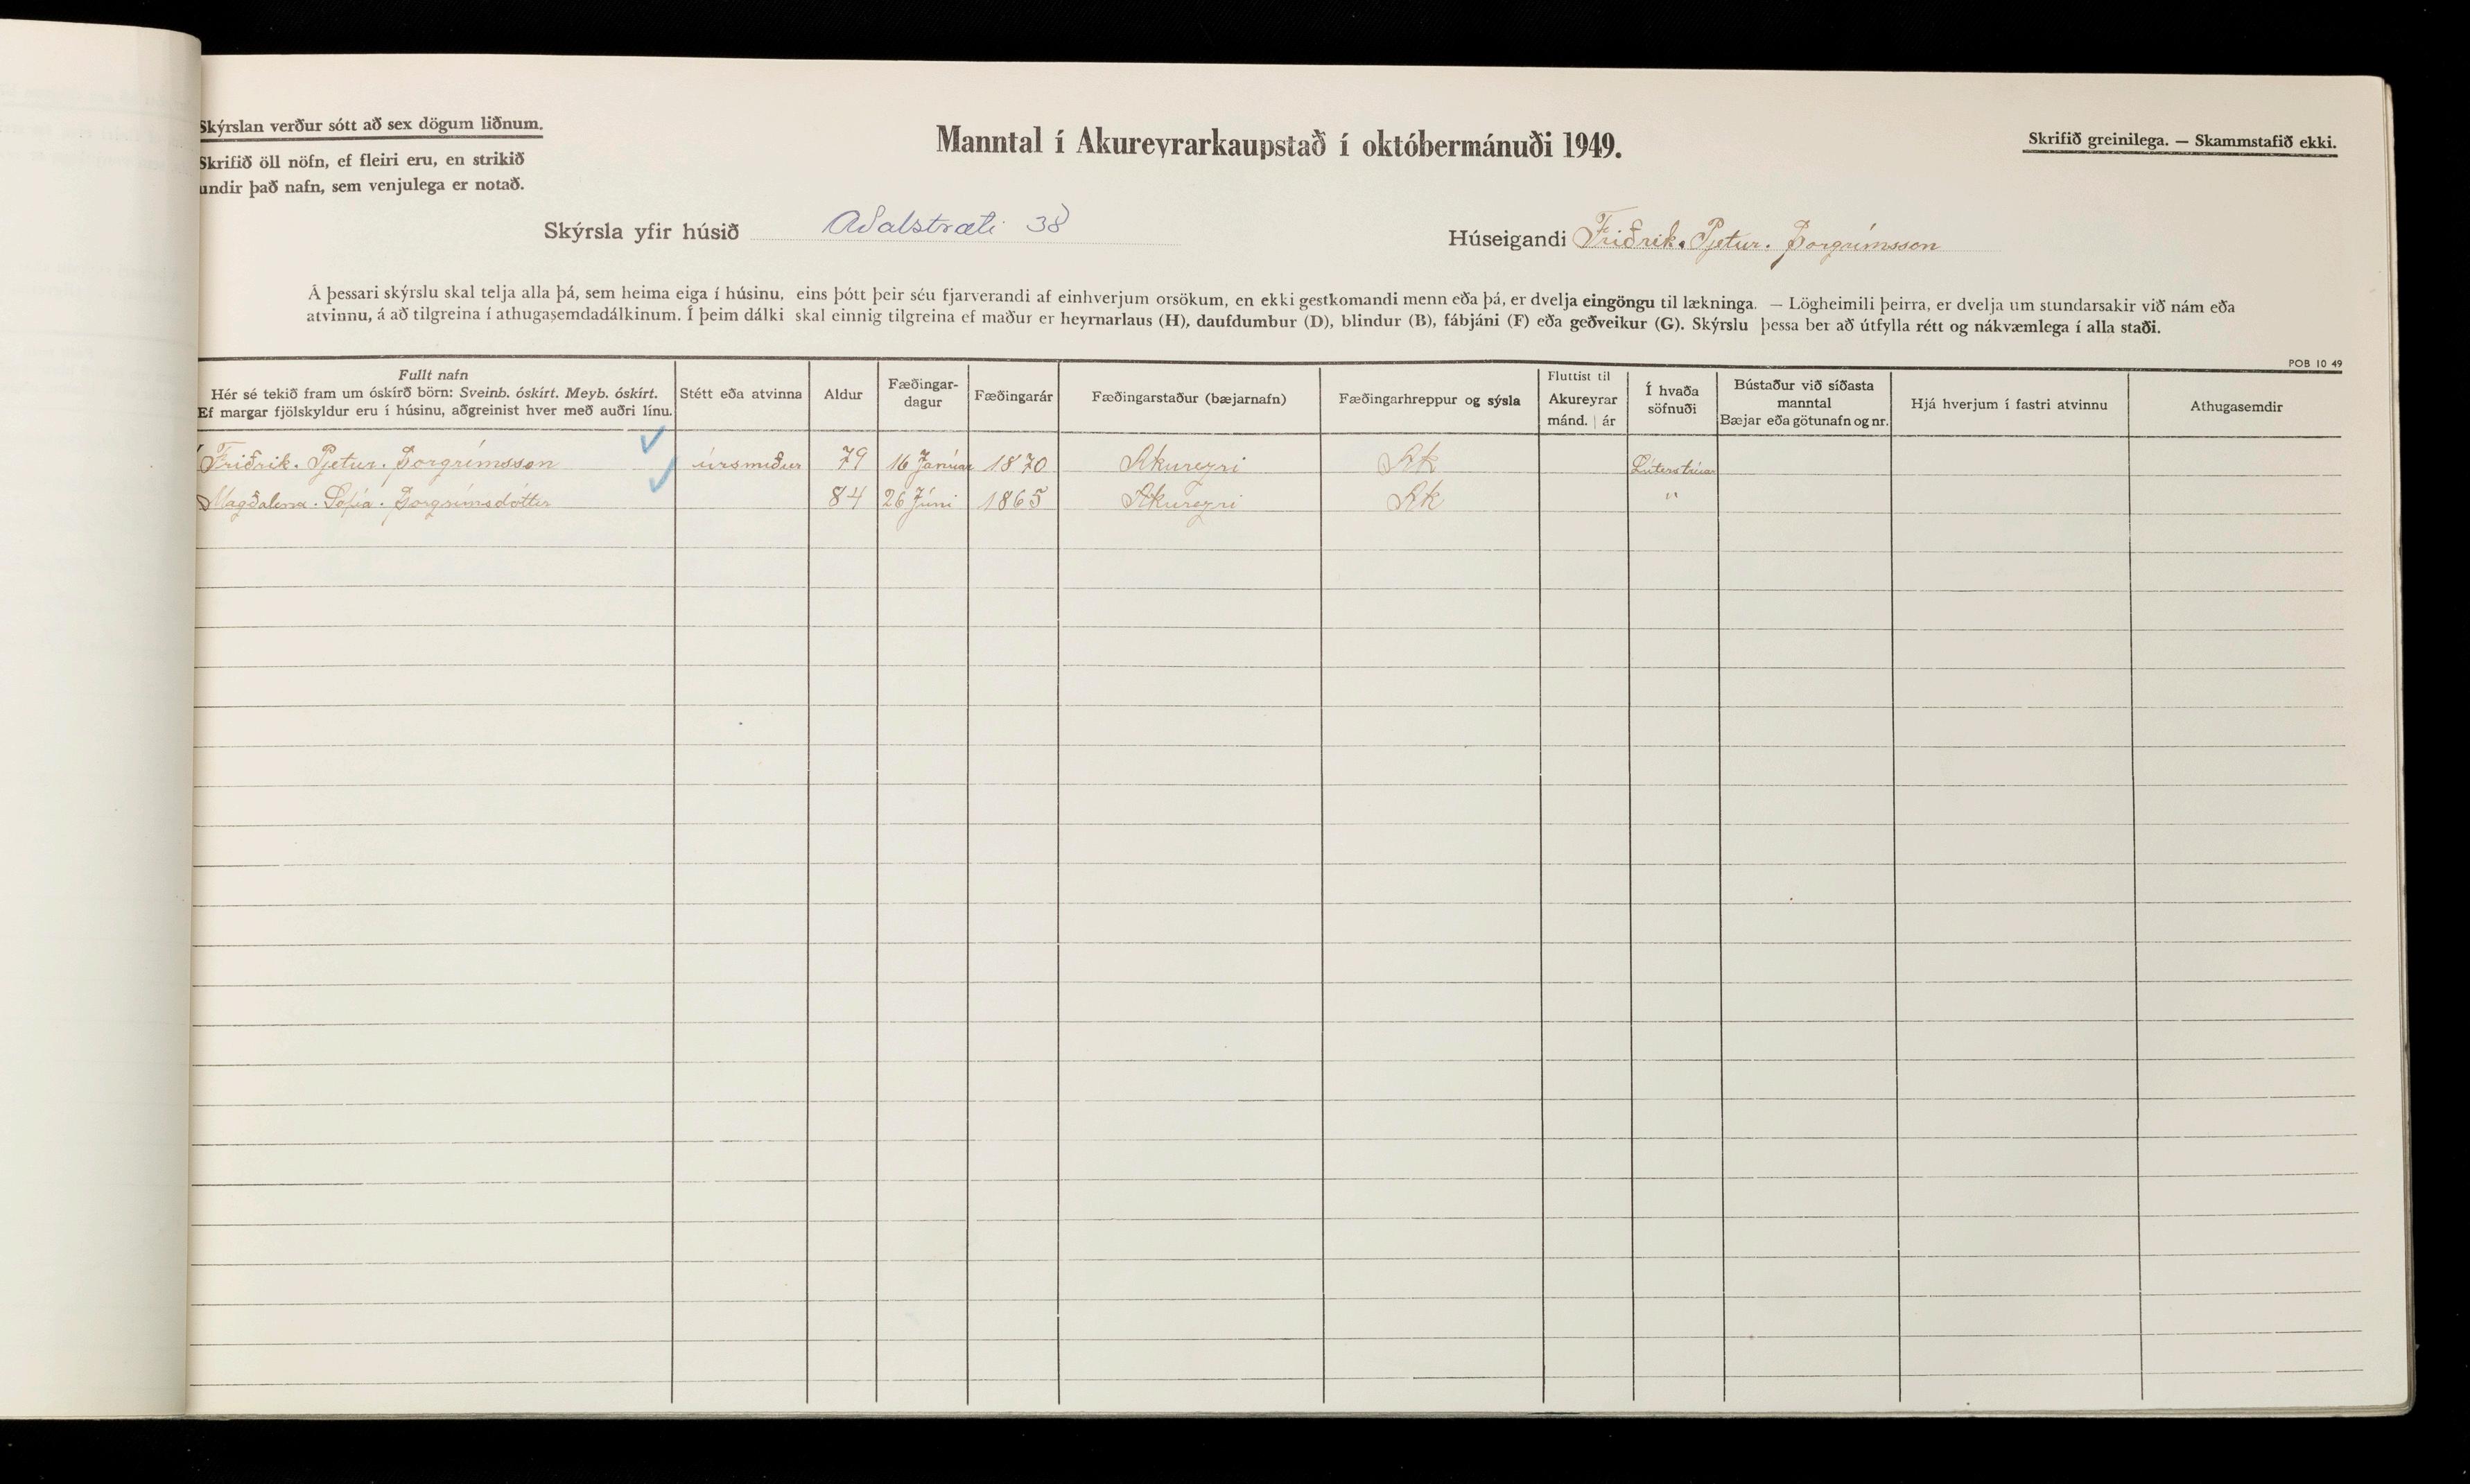 Skýrslan verður sótt að sex dögum liðnum.
Skrifið öll nöfn, ef fleiri eru, en strikið
undir það nafn, sem venjulega er notað.
Manntal í Akureyrarkaupstað í októbermánuði 1949.
Skrifið greinilega. — Skammstafið ekki.
Skýrsla yfir húsið Aðalstræti 38
Húseigandi Friðrik. Pjetur. Þorgrímsson
Á þessari skýrslu skal telja alla þá, sem heima eiga í húsinu, eins þótt þeir séu fjarverandi af einhverjum orsökum, en ekki gestkomandi menn eða þá, er dvelja eingöngu til lækninga. — Lögheimili þeirra, er dvelja um stundarsakir við nám eða
atvinnu, á að tilgreina í athugasemdadálkinum. Í þeim dálki skal einnig tilgreina ef maður er heyrnarlaus (H), daufdumbur (D), blindur (B), fábjáni (F) eða geðveikur (G). Skýrslu þessa ber að útfylla rétt og nákvæmlega í alla staði.
POB 10 49
Fullt nafn
Hér sé tekið fram um óskírð börn: Sveinb. óskírt. Meyb. óskírt.
Ef margar fjölskyldur eru í húsinu, aðgreinist hver með auðri línu.
Stétt eða atvinna
Aldur
Fæðingar-
dagur
Fæðingarár
Fæðingarstaður (bæjarnafn)
Fæðingarhreppur og sýsla
Fluttist til
Akureyrar
mánd. | ár
Í hvaða
söfnuði
Bústaður við síðasta
manntal
Bæjar eða götunafn og nr.
Hjá hverjum í fastri atvinnu
Athugasemdir
Friðrik. Pjetur. Þorgrímsson ✓ úrsmiður 79 16 Janúar 1870 Akureyri Ak Lúterstrúar
Magðalena. Sofía. Þorgrímsdóttir ✓ 84 26 Júni 1865 Akureyri Ak "